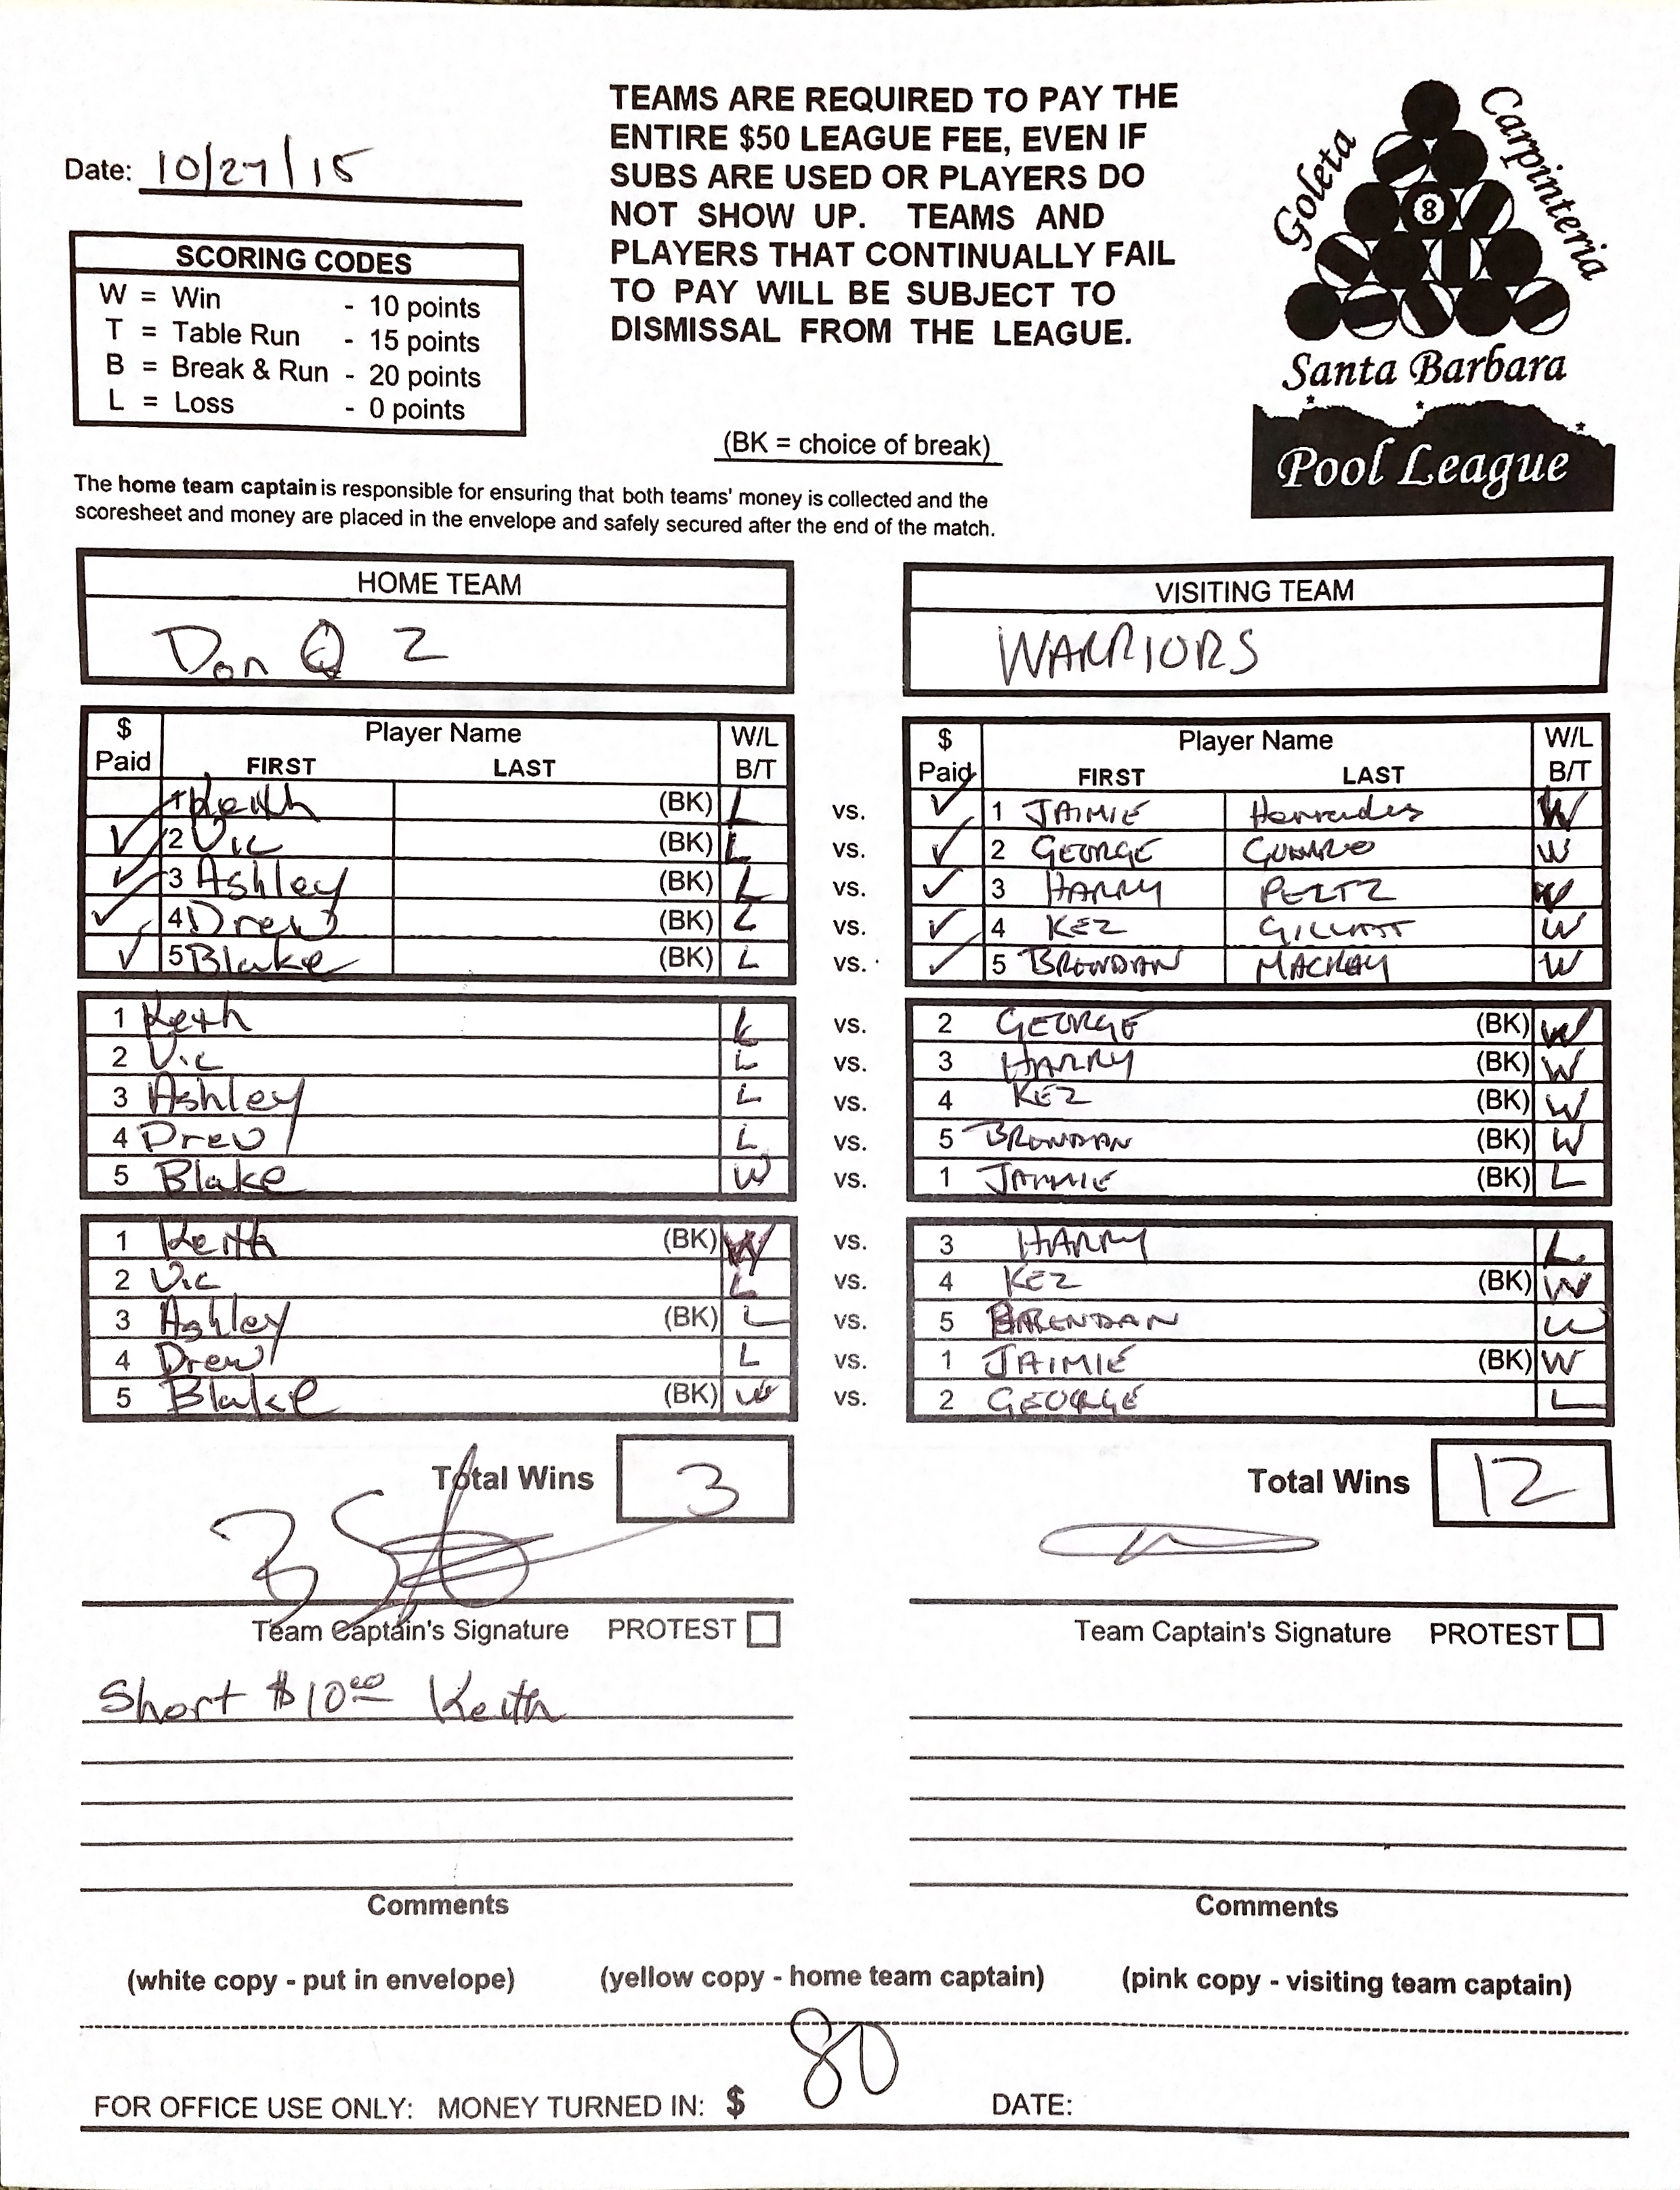 TEAMS ARE REQUIRED TO PAY THE
ENTIRE $50 LEAGUE FEE, EVEN IF
SUBS ARE USED OR PLAYERS DO
NOT SHOW UP. TEAMS AND
PLAYERS THAT CONTINUALLY FAIL
TO PAY WILL BE SUBJECT TO
DISMISSAL FROM THE LEAGUE.
Date: 10/27/15
Goleta
Carpinteria
8
Santa Barbara
Pool League
SCORING CODES
W = Win - 10 points
T = Table Run - 15 points
B = Break & Run - 20 points
L = Loss - 0 points
(BK = choice of break)
The home team captain is responsible for ensuring that both teams' money is collected and the
scoresheet and money are placed in the envelope and safely secured after the end of the match.
HOME TEAM
Don Q 2
VISITING TEAM
WARRIORS
$ Paid Player Name FIRST LAST W/L B/T
$ Paid Player Name FIRST LAST W/L B/T
1 Keith (BK) L vs. 1 JAIMIE W
2 Vic (BK) L vs. 2 GEORGE W
3 Ashley (BK) L vs. 3 HARRY PELTZ W
4 Drew (BK) L vs. 4 KEZ W
5 Blake (BK) L vs. 5 BRENDAN MACKAY W
1 Keith L vs. 2 GEORGE (BK) W
2 Vic L vs. 3 HARRY (BK) W
3 Ashley L vs. 4 KEZ (BK) W
4 Drew L vs. 5 BRENDAN (BK) W
5 Blake W vs. 1 JAIMIE (BK) L
1 Keith (BK) W vs. 3 HARRY L
2 Vic L vs. 4 KEZ (BK) W
3 Ashley (BK) L vs. 5 BRENDAN W
4 Drew L vs. 1 JAIMIE (BK) W
5 Blake (BK) W vs. 2 GEORGE L
Total Wins 3
Total Wins 12
Team Captain's Signature PROTEST
Team Captain's Signature PROTEST
Short $10.00 Keith
Comments
Comments
(white copy - put in envelope) (yellow copy - home team captain) (pink copy - visiting team captain)
FOR OFFICE USE ONLY: MONEY TURNED IN: $ 80 DATE: